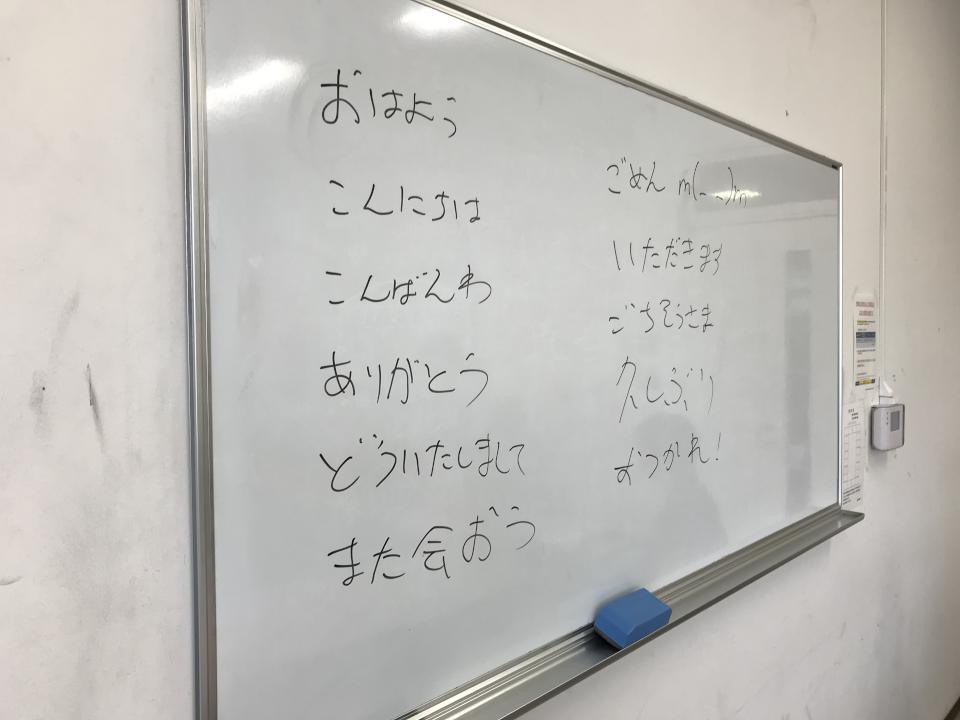 おはよう
こんにちは
こんばんわ
ありがとう
どういたしまして
また会おう
ごめん m(_ _)m
いただきます
ごちそうさま
久しぶり
おつかれ!